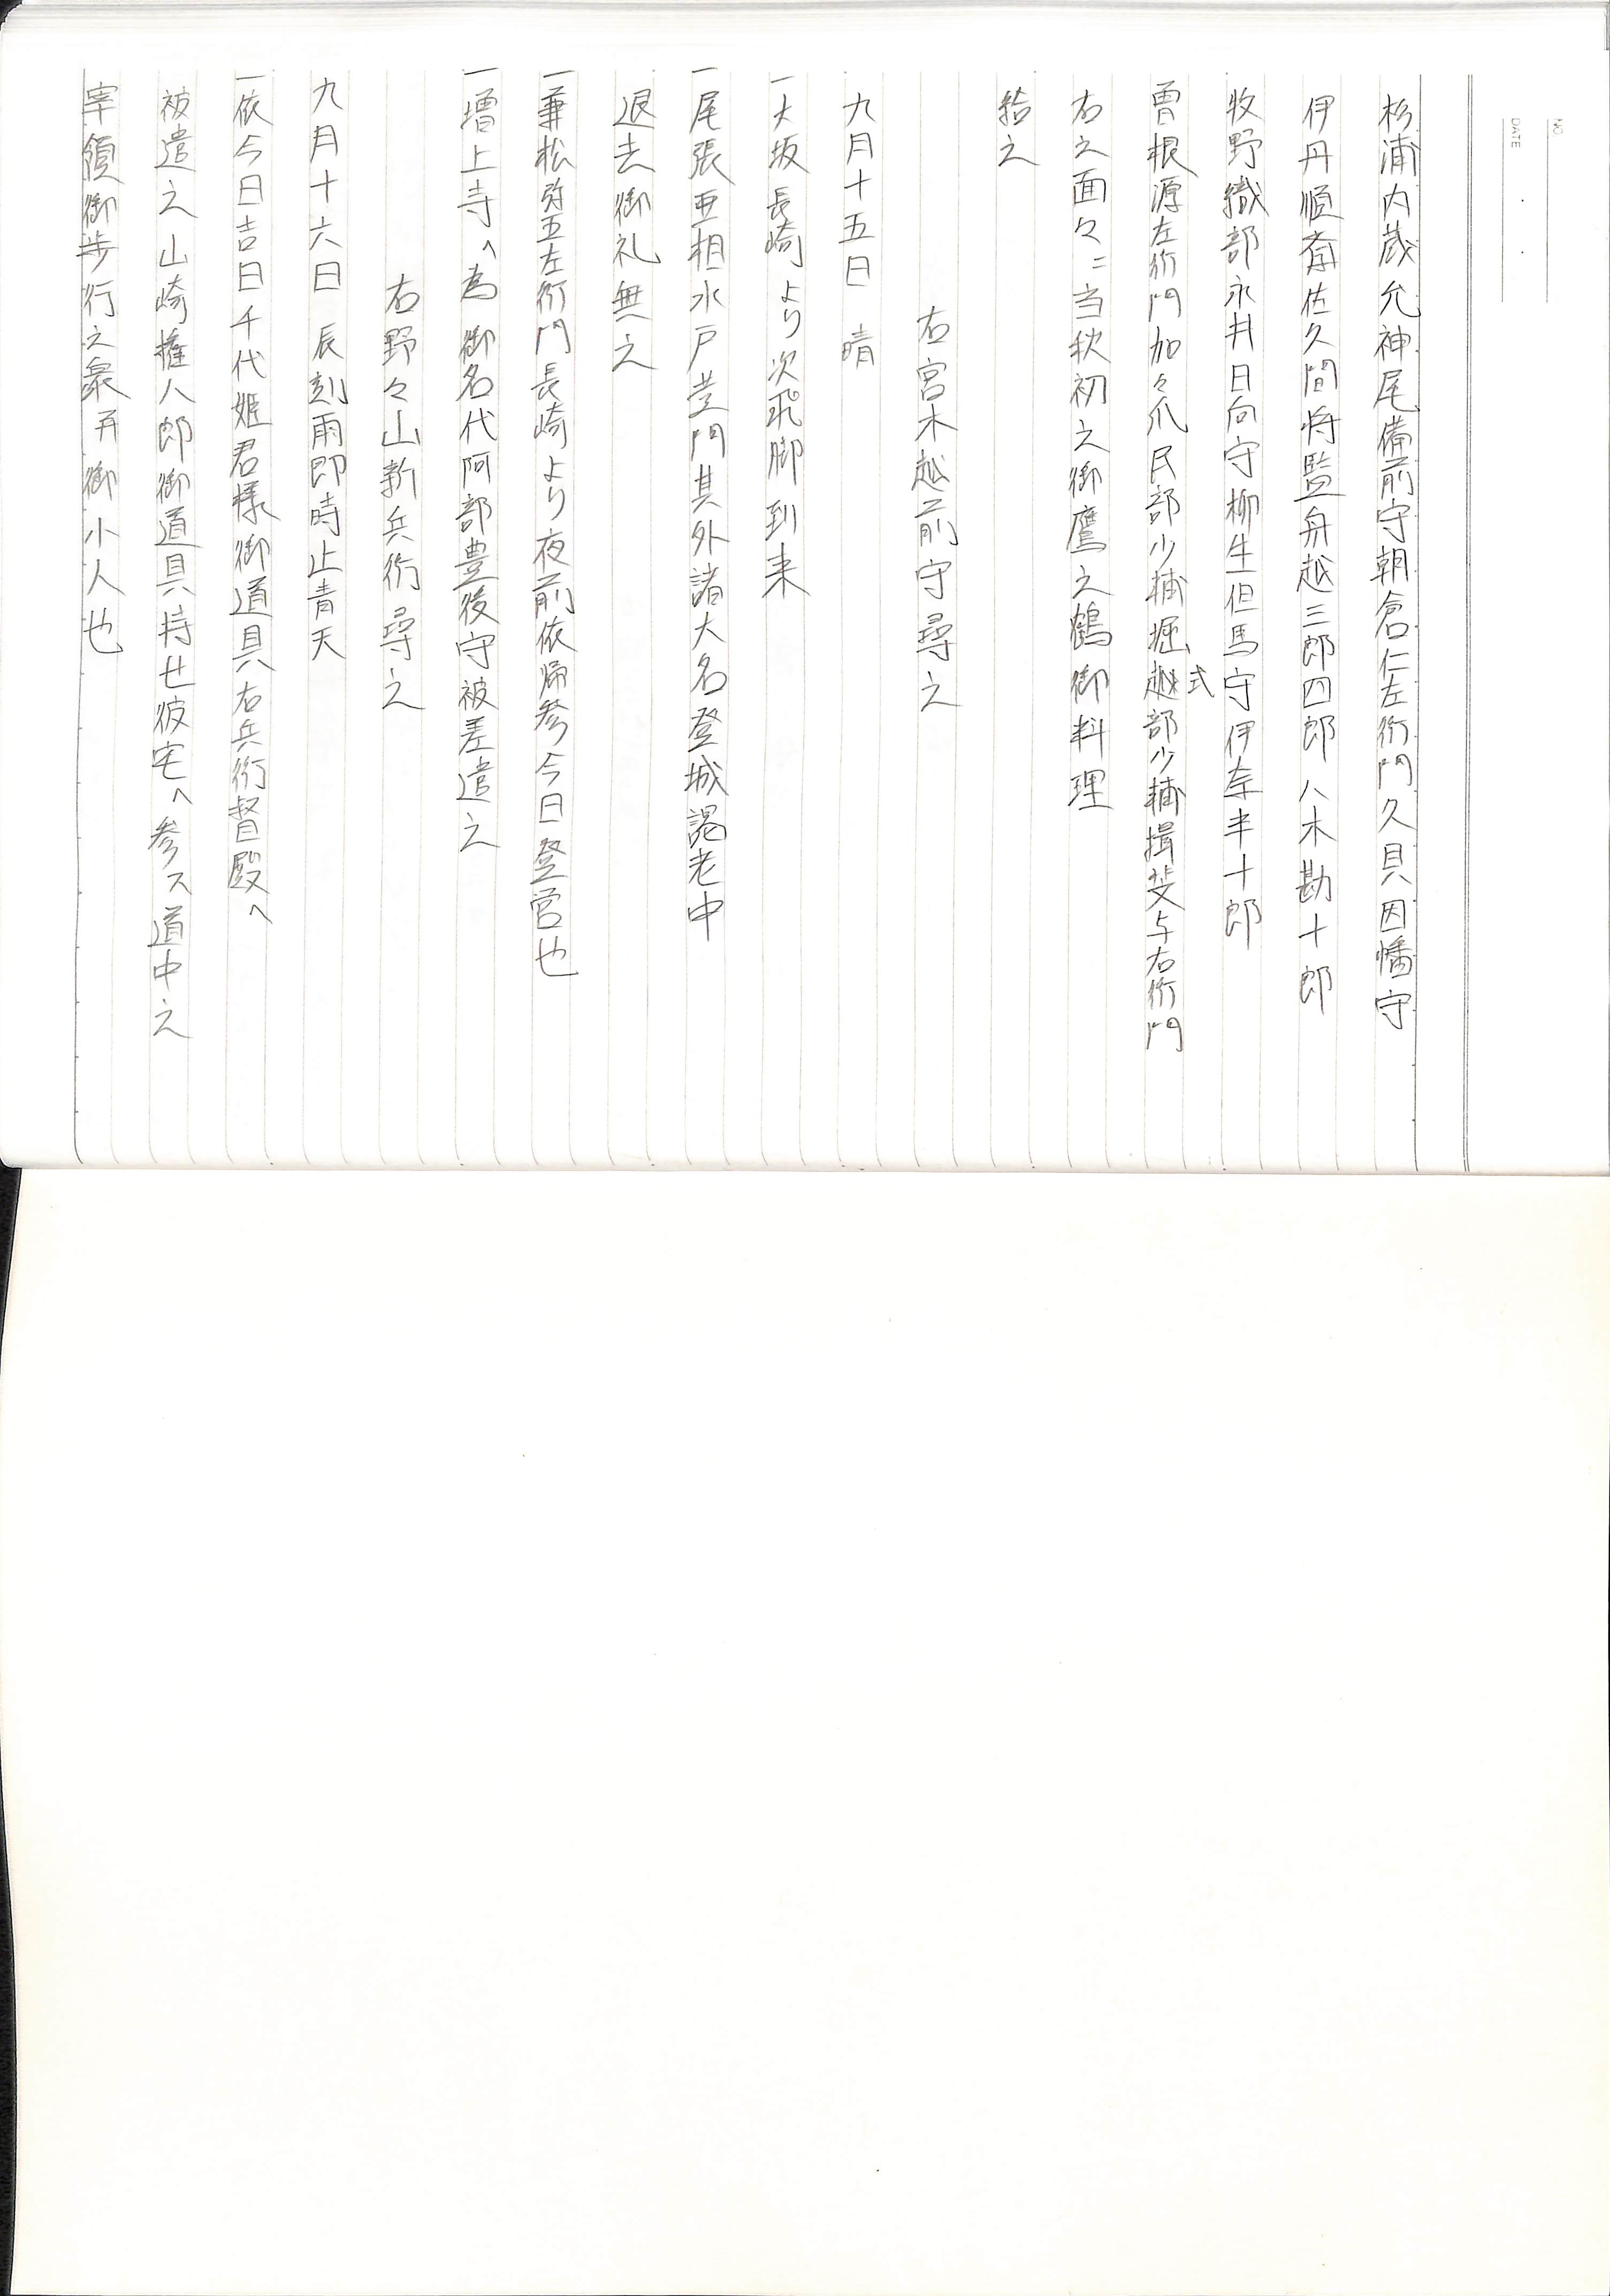 NO
DATE
杉浦内蔵允神尾備前守朝倉仁左衛門久貝因幡守
伊丹順斎佐久間将監舟越三郎四郎八木勘十郎
牧野織部永井日向守柳生但馬守伊奈半十郎
曽根源左衛門加々爪民部少輔堀越部少輔揖斐与右衛門
式
右之面々ニ当秋初之御鷹之鶴御料理
給之
右宮木越前守尋之
九月十五日 晴
一大坂長崎より次飛脚到来
一尾張亜相水戸黄門其外諸大名登城謁老中
退去御礼無之
一兼松弥五左衛門長崎より夜前依帰参今日登営也
一増上寺へ為御名代阿部豊後守被差遣之
右野々山新兵衛尋之
九月十六日 辰刻雨即時止青天
一依今日吉日千代姫君様御道具右兵衛督殿へ
被遣之山崎権八郎御道具持セ彼宅へ参ス道中之
宰領御歩行之衆并御小人也